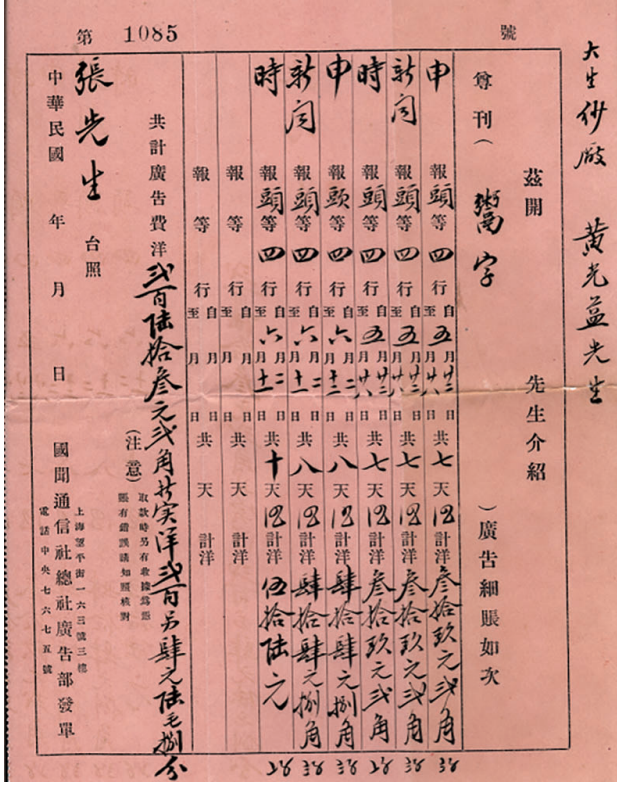 第 1085 號
大生紗廠 黃光益先生
茲開 先生介紹
尊刊( 鬻字 )廣告細賬如次
申報頭等四行自五月廿三日至 月廿六日共七天 計洋叁拾玖元弍角
新聞報頭等四行自五月廿三日至 月廿六日共七天 計洋叁拾玖元弍角
時報頭等四行自五月廿三日至 月廿六日共七天 計洋叁拾玖元弍角
申報頭等四行自六月 日至 月 日共八天 計洋肆拾肆元捌角
新聞報頭等四行自六月 日至 月 日共八天 計洋肆拾肆元捌角
時報頭等四行自六月 日至 月 日共十天 計洋伍拾陆元
報 等 行自 月 日至 月 日共 天 計洋
報 等 行自 月 日至 月 日共 天 計洋
共計廣告費洋弍百陆拾叁元弍角 实洋弍百另肆元陆毛捌分
(注意) 取款時另有收據為憑
賬有錯誤請知照核對
張先生 台照
中華民國 年 月 日 國聞通信社總社廣告部發單
上海望平街一六三號三樓
電話中央七六七五號